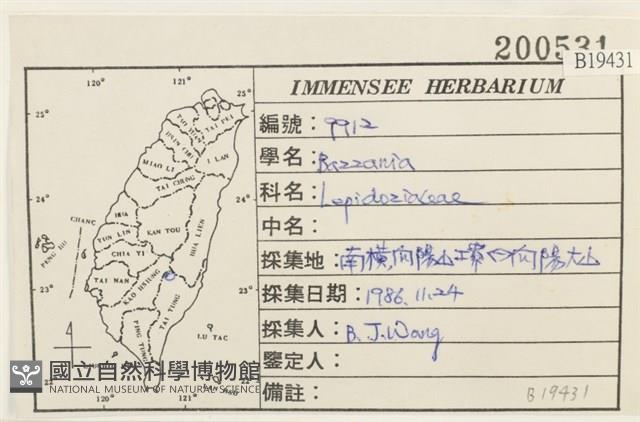 200531
B19431
IMMENSEE HERBARIUM
編號：9912
學名：Bazzania
科名：Lepidoziaceae
中名：
採集地：南橫,向陽山工寮
採集日期：1986.11.24
採集人：B.J.Wang
鑒定人：
備註：
B19431
120°
121°
25°
25°
24°
24°
23°
23°
22°
120°
121°
TAI PEI
I LAN
MIAO LI
TAI CHUNG
CHANG
HUA
NAN TOU
HUA LIEN
YUN LIN
CHIA YI
PENG HU
TAI NAN
KAO HSIUNG
TAI TUNG
PING TUNG
LU TAO
國立自然科學博物館
NATIONAL MUSEUM OF NATURAL SCIENCE